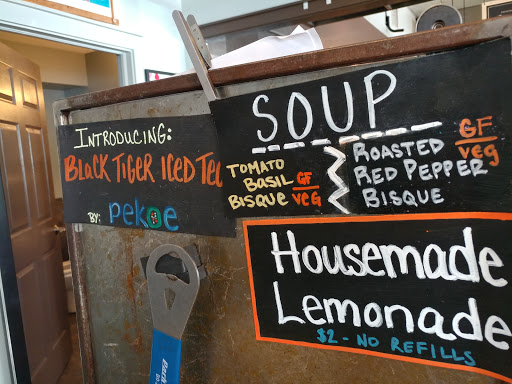 INTRODUCING:
BLACK TIGER ICED TEA
BY: pekoe
SOUP
TOMATO
BASIL
BISQUE
GF
veg
ROASTED
RED PEPPER
BISQUE
GF
veg
Housemade
Lemonade
$2 - NO REFILLS